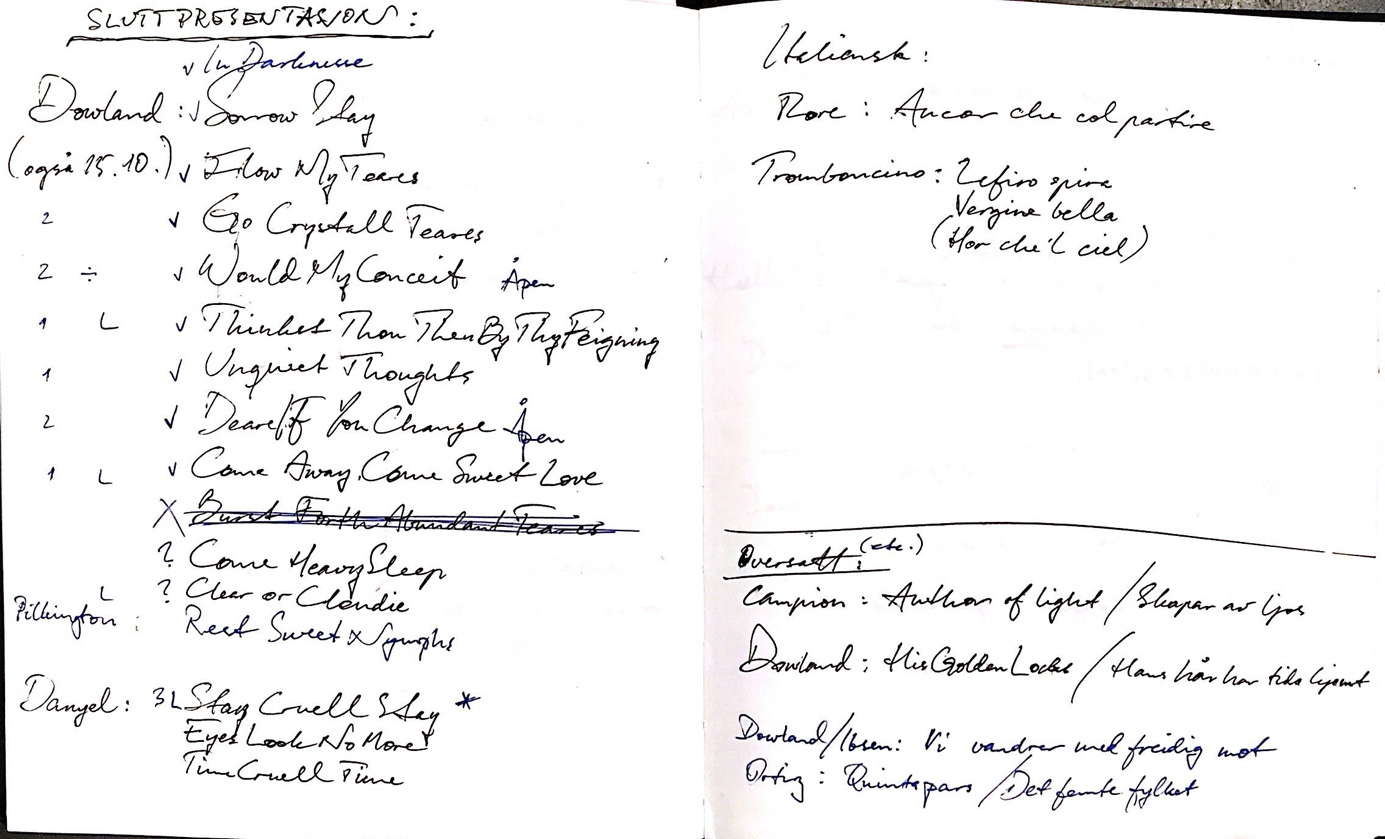 SLUTTPRESENTASJON:
√ In Darknesse
Dowland: √ Sorrow Stay
(også 15.10.) √ Flow My Teares
2 √ Go Crystall Teares
2 ÷ √ Would My Conceit Åpen
1 L √ Thinkst Thou Then By Thy Feigning
1 √ Unquiet Thoughts
2 √ Deare If You Change Åpen
1 L √ Come Away, Come Sweet Love
X Burst Forth Abundant Teares
? Come Heavy Sleep
L ? Clear or Cloudie
Pilkington: Rest Sweet Nymphs
Danyel: 3L Stay Cruell Stay *
Eyes Look No More
Time Cruell Time
Italiensk:
Rore: Ancor che col partire
Tromboncino: Zefiro spira
Vergine bella
(Hor che'l ciel)
Oversatt: (etc.)
Campion: Author of light / Skapar av ljos
Dowland: His Golden Locks / Hans hår har tida
Dowland/Ibsen: Vi vandrer med freidig mot
Ortiz: Quinta pars / Det femte fylket